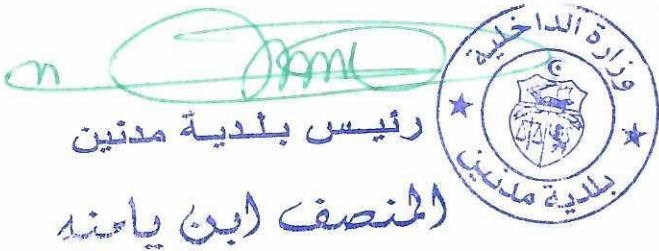 وزارة الداخلية
بلدية مدنين
رئيس بلدية مدنين
المنصف ابن يامنه